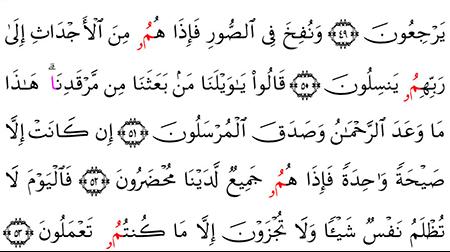 يَرْجِعُونَ ۝٤٩ وَنُفِخَ فِى ٱلصُّورِ فَإِذَا هُمُۥ مِنَ ٱلْأَجْدَاثِ إِلَىٰ
رَبِّهِمُۥ يَنسِلُونَ ۝٥٠ قَالُوا۟ يَـٰوَيْلَنَا مَنۢ بَعَثَنَا مِن مَّرْقَدِنَاۗ هَـٰذَا
مَا وَعَدَ ٱلرَّحْمَـٰنُ وَصَدَقَ ٱلْمُرْسَلُونَ ۝٥١ إِن كَانَتْ إِلَّا
صَيْحَةً وَٰحِدَةً فَإِذَا هُمُۥ جَمِيعٌ لَّدَيْنَا مُحْضَرُونَ ۝٥٢ فَٱلْيَوْمَ لَا
تُظْلَمُ نَفْسٌ شَيْـًٔا وَلَا تُجْزَوْنَ إِلَّا مَا كُنتُمُۥ تَعْمَلُونَ ۝٥٣